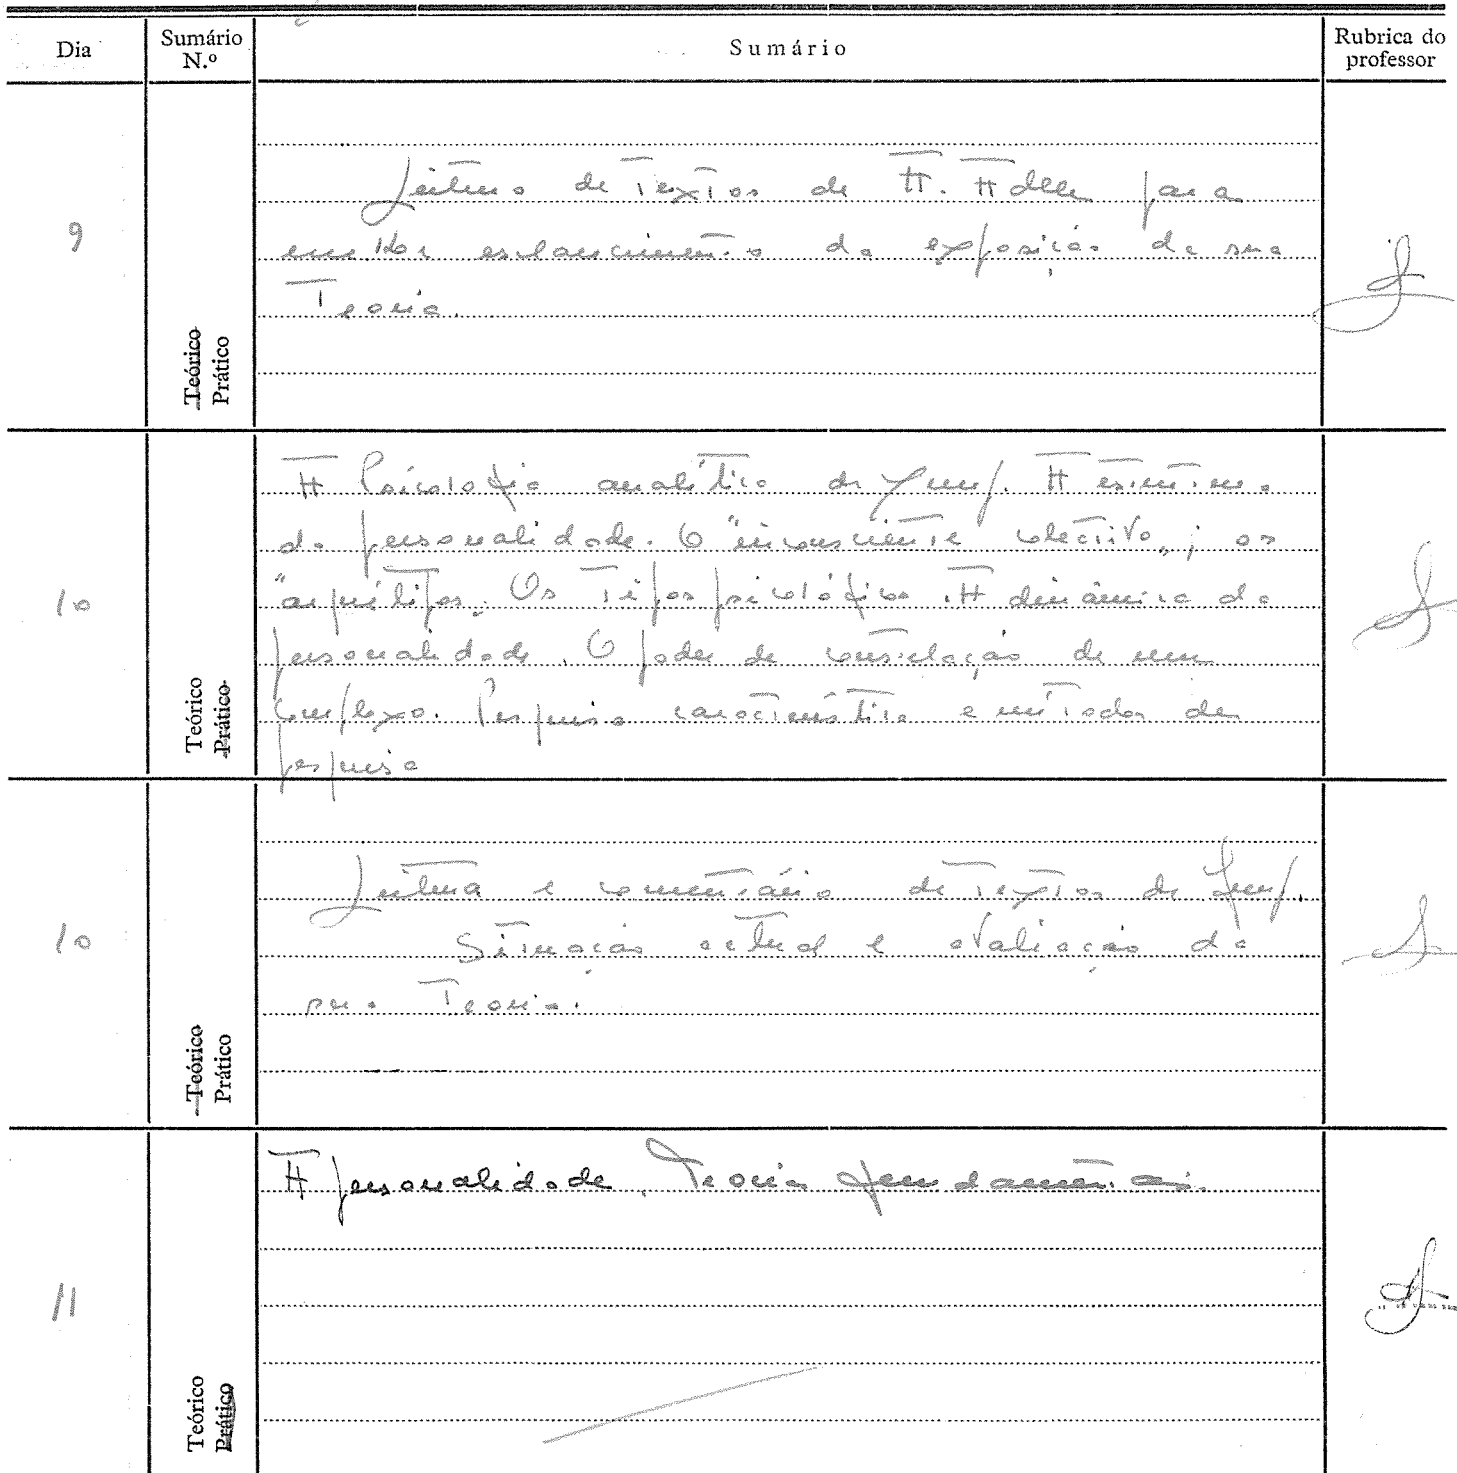 Dia Sumário N.º Sumário Rubrica do professor
9
Leitura de Textos de A. Adler para
melhor esclarecimento da exposição da sua
Teoria.
Teórico
Prático
10
A Psicologia analítica de Jung. A estrutura
da personalidade. O "inconsciente colectivo"; os
"arquétipos". Os Tipos psicológicos. A dinâmica da
personalidade. O poder de constelação de um
complexo. Pesquisa característica e métodos de
pesquisa
Teórico
Prático
10
Leitura e comentário de Textos de Jung.
Situação actual e avaliação da
sua Teoria.
Teórico
Prático
11
A personalidade. Teorias fundamentais.
Teórico
Prático